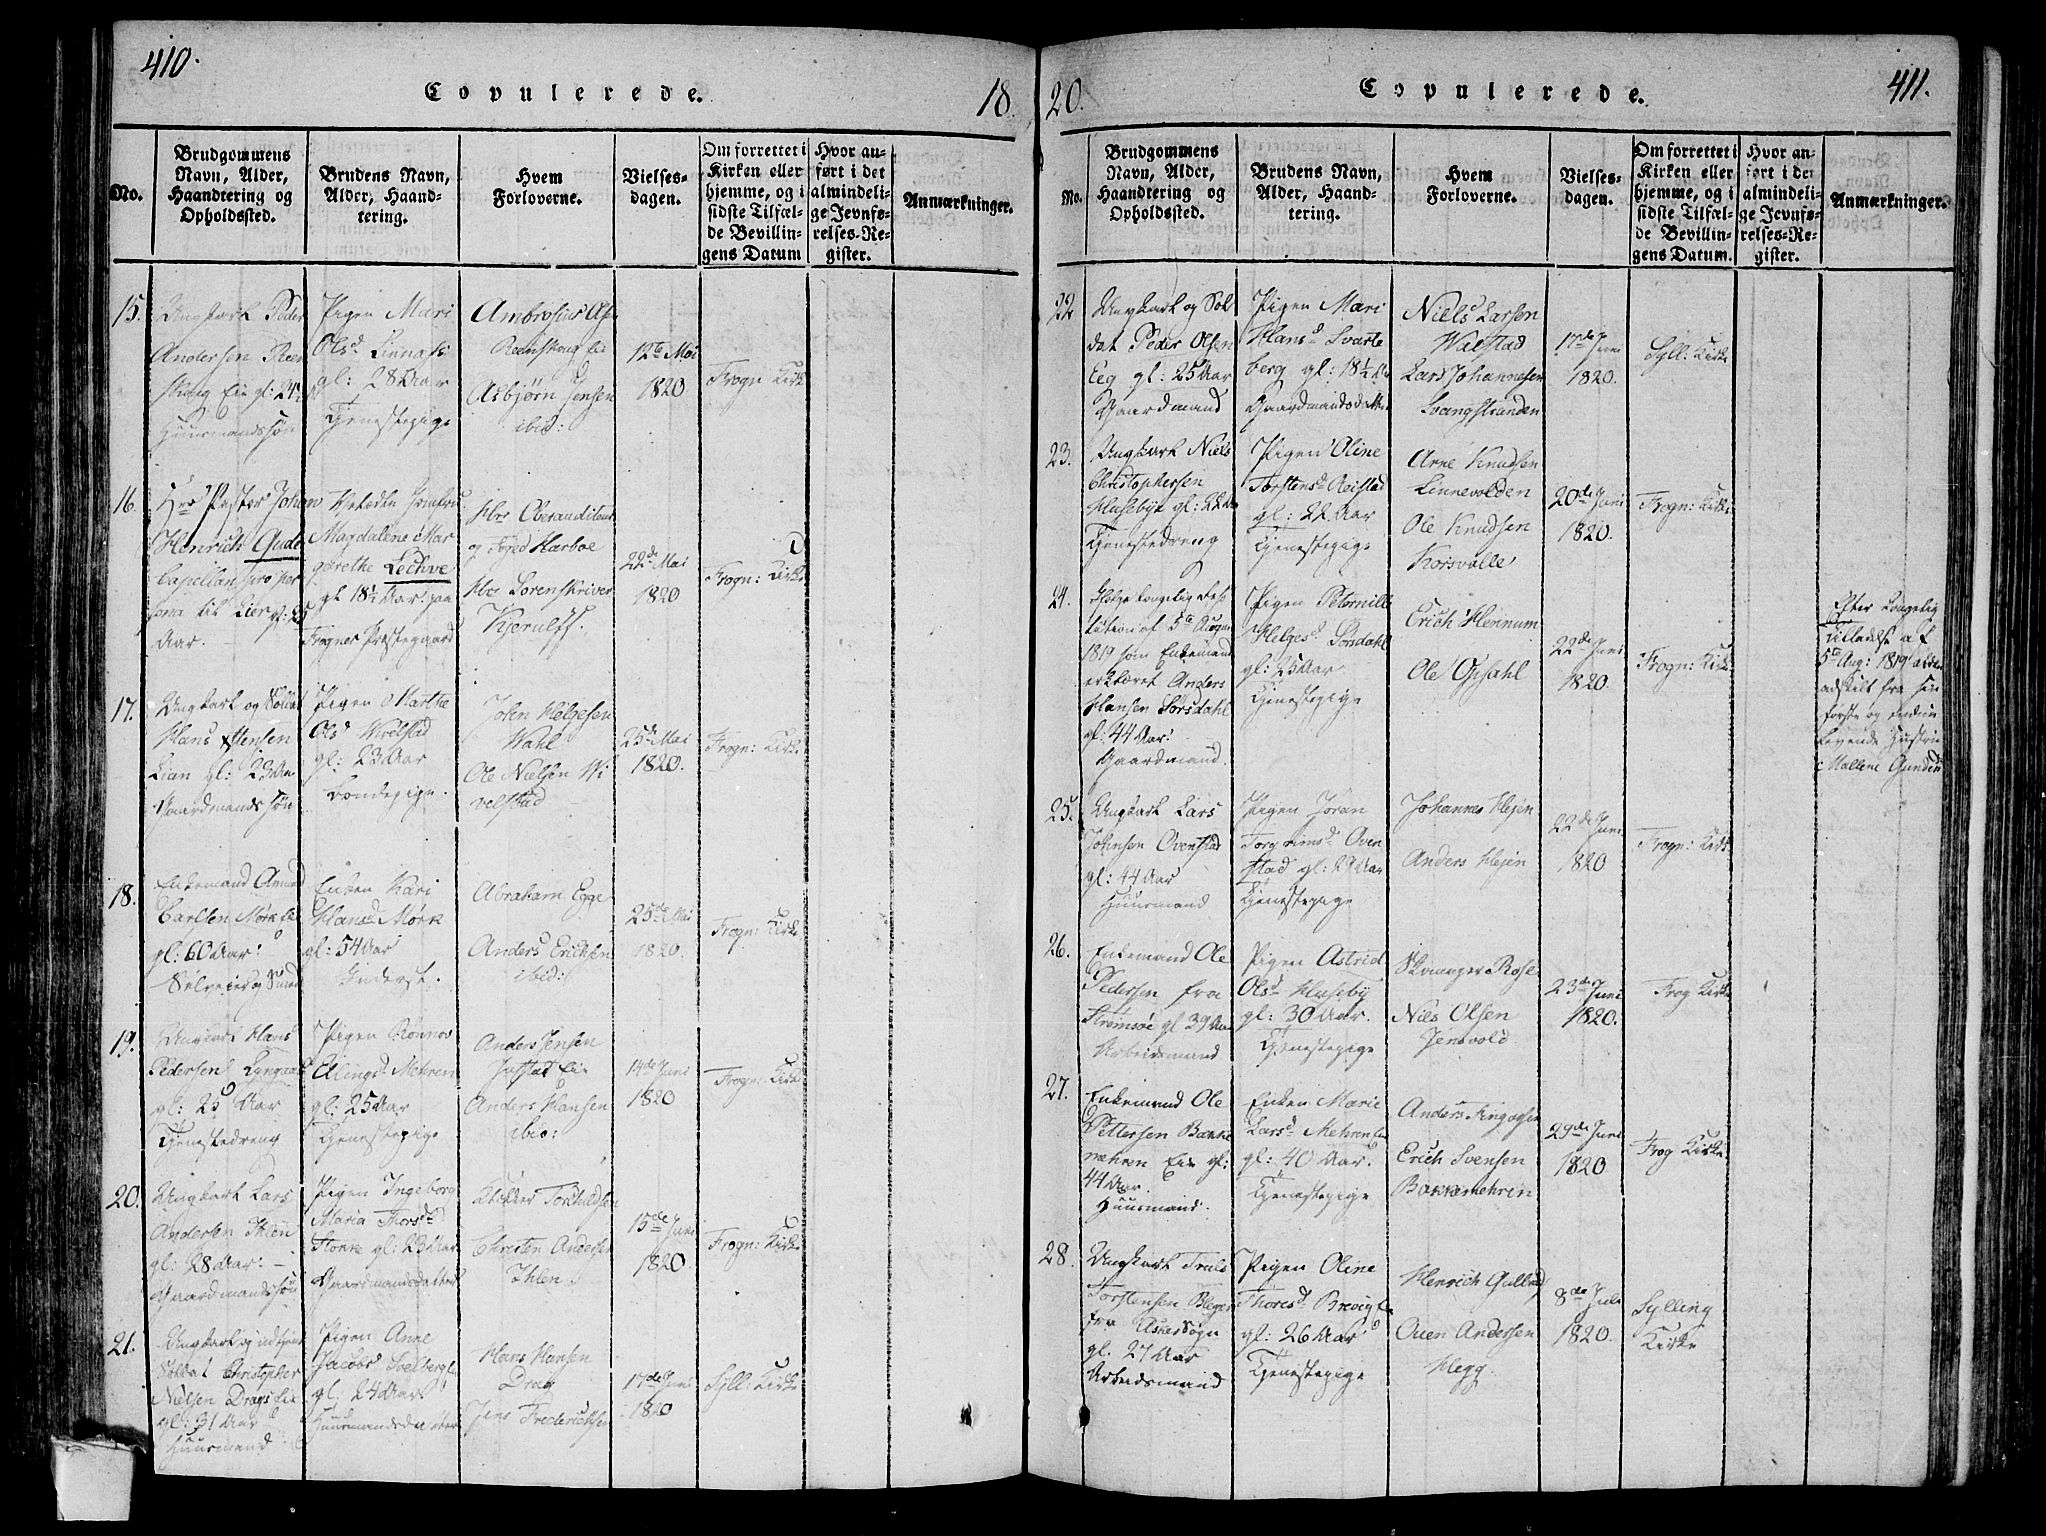 410.
Copulerede.
18
No.
Brudgommens
Navn, Alder,
Haandtering og
Opholdssted.
Brudens Navn,
Alder, Haand-
tering.
Hvem
Forloverne.
Vielses-
dagen.
Om forrettet i
Kirken eller
hjemme, og i
sidste Tilfæl-
de Bevillin-
gens Datum
Hvor an-
ført i det
almindeli-
ge Jevnfø-
relses-Re-
gister.
Anmærkninger.
15.
Ungkarl Peder
Andersen Reen
skoug Eie gl: 24½
Huusmandssøn
Pigen Mari
Olsd Linnæs
gl: 28 Aar
Tjenestepige
Ambrosius
Reenskoug Eie
Asbjørn Jensen
ibid:
12te Mai
1820
Frogn Kirke
16.
Hrr Pastor Johan
Henrich Gude
Capellan pro per
sona til Lier gl: 25
Aar.
Jomfru
Magdalene Mar
grethe Lechve
gl 18½ Aar. paa
Frogner Præstegaard
Hrr Oberauditeur
og Foged Harboe
Hrr Sorenskriver
Kjerulff.
22de Mai
1820
Frogn: Kirke
17.
Ungkarl og Soldat
Hans Stensen
Lian gl: 23 Aar
Gaardmandssøn
Pigen Marthe
Olsd Wivelstad
gl: 23 Aar
Bondepige.
John Helgesen
Wahl
Ole Nielsen Wi
velstad
25de Mai
1820.
Frogn: Kirke
18.
Enkemand Amund
Carlsen Mørk Eie
gl: 60 Aar.
Selveier og Smed
Enken Kari
Hansd Mørk
gl: 54 Aar
Inderst.
Abraham Egge
Anders Erichsen
ibid:
25de Mai
1820.
Frogn: Kirke
19.
Ungkarl Hans
Pedersen Lyngaas
gl: 25 Aar
Tjenestedreng
Pigen Rønnov
Elingsd Mehren
gl: 25 Aar
Tjenestepige
Anders Jensen
Justad Eie
Anders Hansen
ibid:
14de Juni
1820
Frogn: Kirke
20.
Ungkarl Lars
Andersen Ihlen
gl: 28 Aar.
Gaardmandssøn
Pigen Ingeborg
Maria Thorsd
Stokke gl: 23 Aar
Gaardmandsdatter
Torkildsen
Christen Andersen
Ihlen
15de Juni
1820
Frogn: Kirke
21.
Ungkarl og udtjent
Soldat Christopher
Nielsen Drags Eie
gl: 31 Aar
Huusmand
Pigen Anne
Jacobsd Solberg
gl: 24 Aar
Huusmandsdatter
Hans Hansen
Drag
Jens Frederichsen
17de Juni
1820
Syll: Kirke
20.
Copulerede.
411.
No.
Brudgommens
Navn, Alder,
Haandtering og
Opholdssted.
Brudens Navn,
Alder, Haand-
tering.
Hvem
Forloverne.
Vielses-
dagen.
Om forrettet i
Kirken eller
hjemme, og i
sidste Tilfæl-
de Bevillin-
gens Datum.
Hvor an-
ført i det
almindeli-
ge Jevnfø-
relses-Re-
gister.
Anmærkninger.
22
Ungkarl og Sol
dat Peder Olsen
Eeg gl: 25 Aar
Gaardmand
Pigen Mari
Hansd Svarte
berg gl: 18½ Aar
Niels Larsen
Walstad
Lars Johannesen
Svangstranden
17de Juni
1820.
Syll: Kirke
23.
Ungkarl Niels
Christophersen
Huseby gl: 22 Aar
Tjenestedreng
Pigen Oline
Torstensd Reistad
gl: 22 Aar
Tjenestepige
Arne Knudsen
Linnevolden
Ole Knudsen
Korsvolle
20de Juni
1820.
Frogn: Kirke
24.
1819 som Enkemand
erklæret Anders
Hansen Sørsdahl
gl: 44 Aar.
Gaardmand.
Pigen Peternille
Helgesd Sørsdahl
gl: 25 Aar
Tjenestepige
Erich Hennum
Ole Opsahl
22de Juni
1820.
Frogn: Kirke
Efter Kongelig
Tilladelse af
5te Aug: 1819
adskilt fra sin
første og endnu
levende Hustrue
25.
Ungkarl Lars
Johnsen Ovenstad
gl: 44 Aar
Huusmand
Pigen Jøran
Torgrimsd Oven
stad gl: 29 Aar
Tjenestepige
Johannes Hejen
Anders Hejen
22de Juni
1820
Frogn: Kirke
26.
Enkemand Ole
Pedersen fra
Strømsøe gl 39 Aar
Arbeidsmand
Pigen Astrid
Olsd Huseby
gl: 30 Aar.
Tjenestepige
Svanger Rose
Niels Olsen
Jensvold
23de Juni
1820.
Frog Kirke
27.
Enkemand Ole
Pettersen Bakke
mehren Eie gl:
44 Aar.
Huusmand.
Enken Marie
Larsd Mehren Eie
gl: 40 Aar.
Tjenestepige
Anders
Erich Svensen
Bakkemehren
29de Juni
1820
Frog Kirke
28.
Ungkarl Truls
Torstensen
fra Asker Sogn
gl. 27 Aar
Arbeidsmand
Pigen Oline
Thoresd Brevig Eie
gl: 26 Aar
Tjenestepige
Henrich Gullaug
Ouen Andersen
Hegg.
8de Juli
1820.
Sylling
Kirke